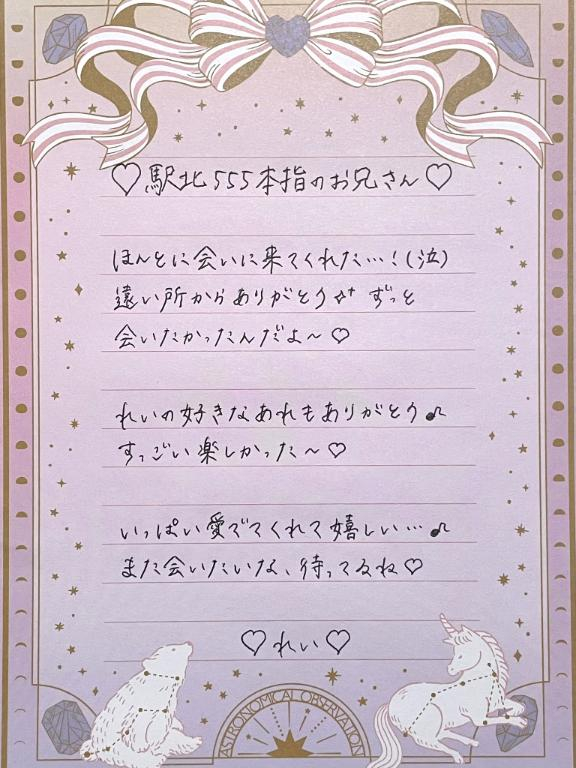 ♡駅北555本指のお兄さん♡
ほんとに会いに来てくれた…!(泣)
遠い所からありがとう✨ ずっと
会いたかったんだよ〜♡
れいの好きなあれもありがとう♪
すっごい楽しかった〜♡
いっぱい愛でてくれて嬉しい…♪
また会いたいな、待ってるね♡
♡れい♡
ASTRONOMICAL OBSERVATION